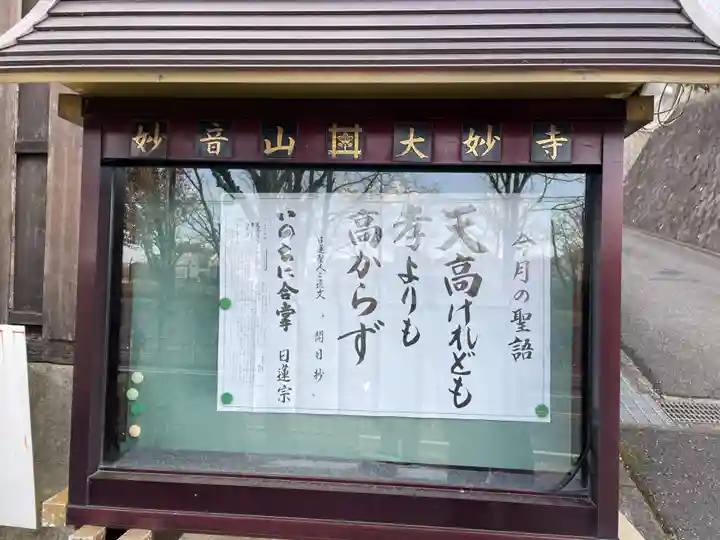 妙音山大妙寺
今月の聖語
天高けれども
孝よりも
高からず
日蓮聖人ご遺文
開目抄
いのちに合掌 日蓮宗